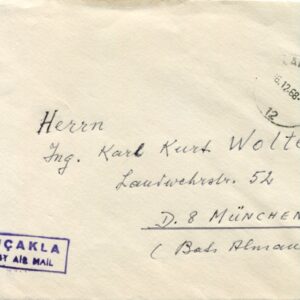 6.12.68
12
Herrn
Ing. Karl Kurt Wolte
Landwehrstr. 52
D. 8 MÜNCHEN
( Batı Alman
UÇAKLA
BY AIR MAIL